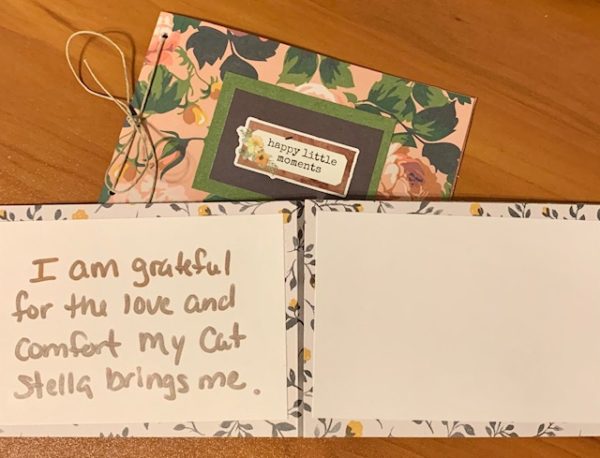 happy little
moments
I am grateful
for the love and
comfort my Cat
Stella brings me.